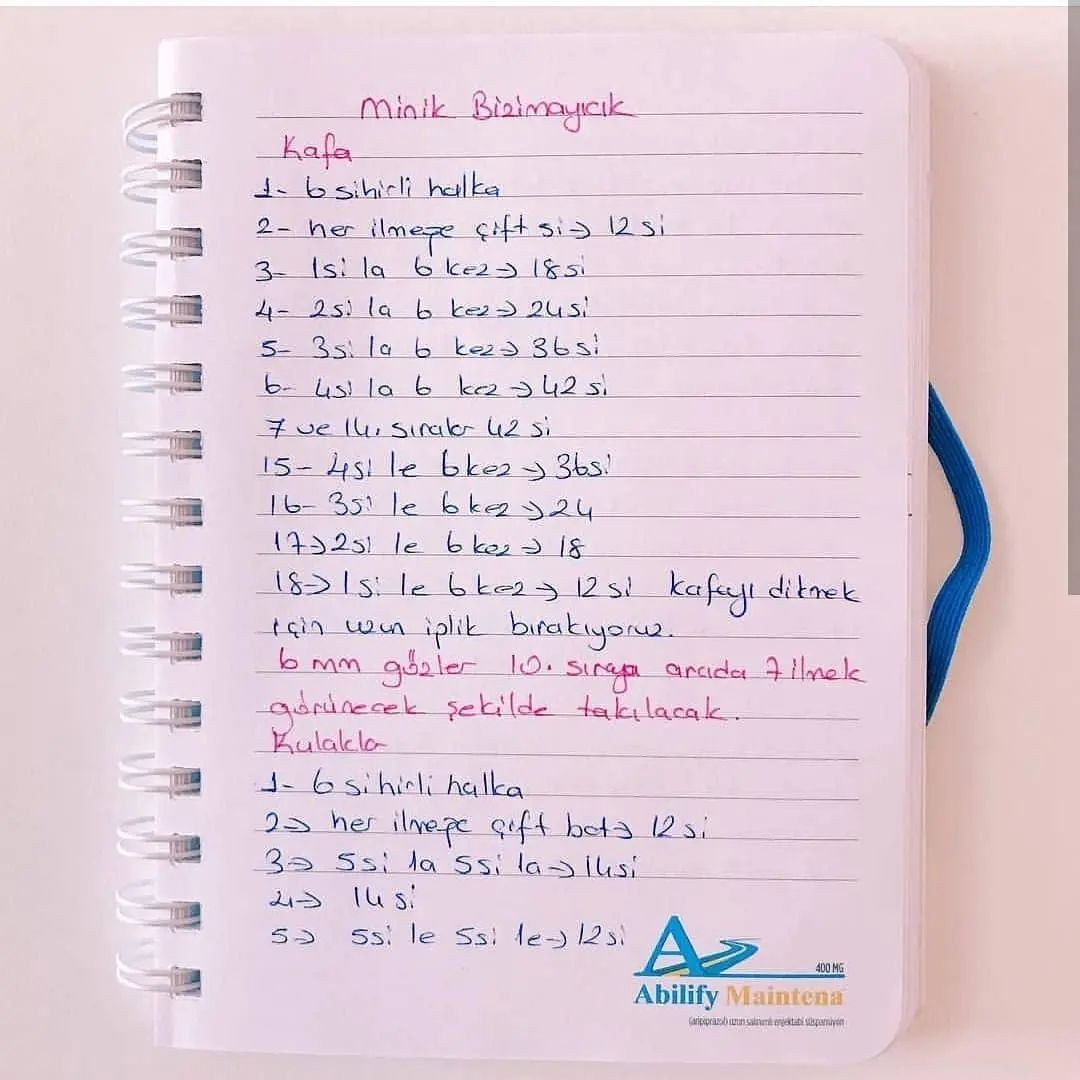 Minik Bizimayıcık
Kafa
1- 6 sihirli halka
2- her ilmeğe çift si → 12 si
3- 1si 1a 6 kez → 18 si
4- 2si 1a 6 kez → 24 si
5- 3si 1a 6 kez → 36 si
6- 4si 1a 6 kez → 42 si
7 ve 14. sıralar 42 si
15- 4si 1e 6 kez → 36si
16- 3si 1e 6 kez → 24
17 → 2si 1e 6 kez → 18
18 → 1si 1e 6 kez → 12 si kafayı dikmek
için uzun iplik bırakıyoruz.
6 mm gözler 10. sıraya arada 7 ilmek
görünecek şekilde takılacak.
Kulaklar
1- 6 sihirli halka
2 → her ilmeğe çift bat → 12 si
3 → 5si 1a 5si 1a → 14si
4 → 14 si
5 → 5si 1e 5si 1e → 12 si
400 MG
Abilify Maintena
(aripiprazol) uzun salınımlı enjektabl süspansiyon